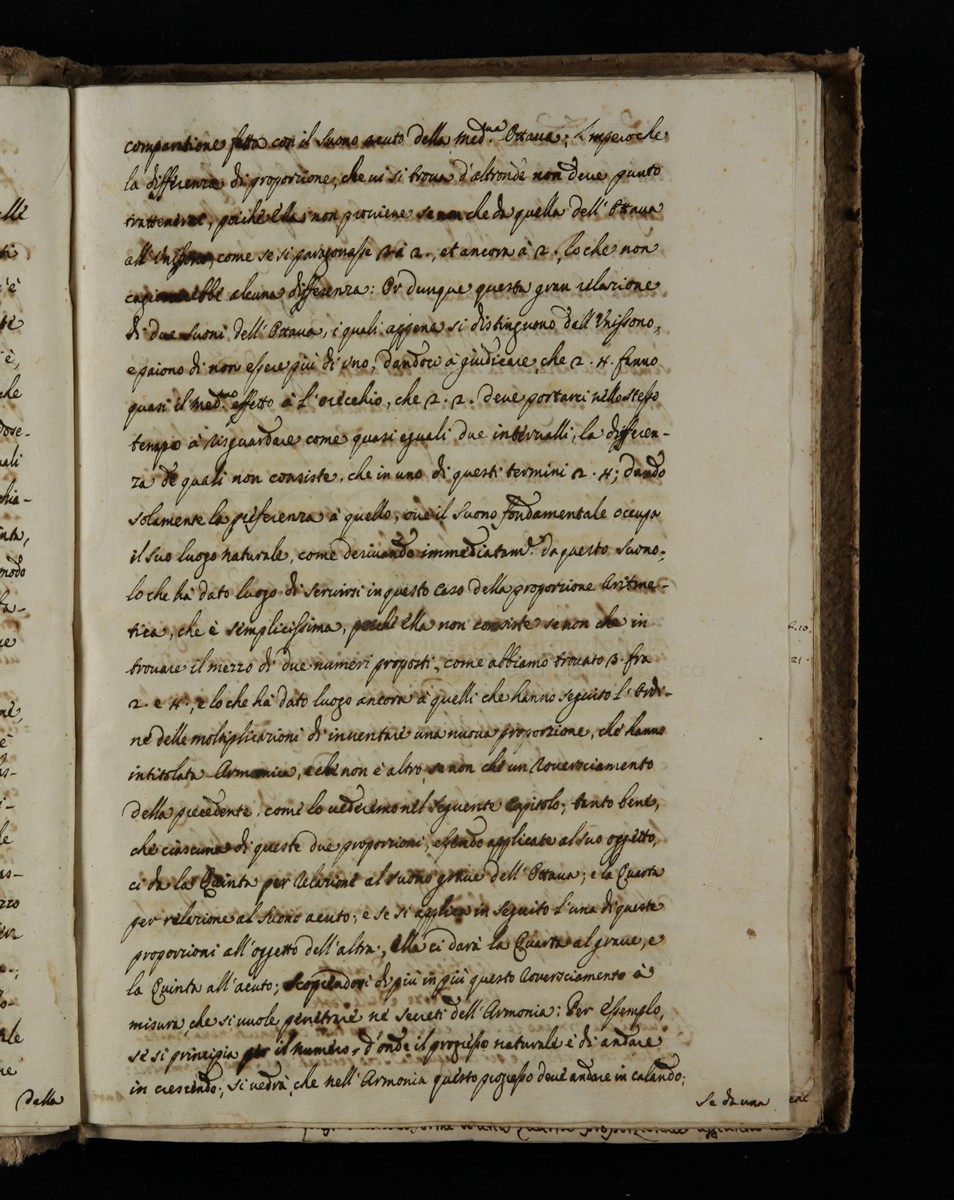 comparatione fatta con il Suono acuto della med.ma Ottava; Imperoche
la differenza di proporzione, che vi si trova d'altronde non deve punto
trattenerci, poiche ella non proviene se non che da quella dell'Ottava
all'Unissono, come se si paragonasse 2 à 2., et ancora à 2., lo che non
cagionarebbe alcuna differenza: Or dunque questa gran relazione
di due Suoni dell'Ottava, i quali appena si distinguono dall'Unissono,
e paiono di non essere più di uno, dandoci à giudicare, che 2. 4. fanno
quasi il med.mo effetto à l'orecchio, che 2. 2. deve portarci nello stesso
tempo à risguardare come quasi eguali due intervalli, la differen-
za de quali non consiste, che in uno di questi termini 2. 4; dando
solamente la preferenza à quello, ove il Suono fondamentale occupa
il suo luogo naturale, come derivando immediatam.e da questo Suono;
lo che hà dato luogo di servirsi in questo caso della proporzione Aritme-
tica, che è semplicissima, poiche ella non consiste se non che in
trovare il mezzo di due numeri proposti, come abbiamo trovato 3. fra
2. e 4., e lo che hà dato luogo ancora à quelli che hanno seguito l'Ordi-
ne delle moltiplicazioni di inventare una nuova proporzione, che hanno
intitolata Armonica, e che non è altro, se non che un Roversciamento
della precedente, come lo vederemo nel seguente Capitolo; tanto bene,
che ciascuna di queste due proporzioni, essendo applicate al suo oggetto,
ci dà la Quinta per relazione al suono grave dell'Ottava; e la Quarta
per relazione al Suono acuto; e se si applica in seguito l'una di queste
proporzioni all'oggetto dell'altra, ella ci darà la Quarta al grave, e
la Quinta all'acuto; scoprendosi di più in più questo Roversciamento à
misura, che si vuole penetrare né secreti dell'Armonia: Per essempio,
se si principia per il numero, d'onde il progresso naturale è di andare
in crescendo; si vedrà, che nell'Armonia questo progresso deve andare in calando;
Se da una
Della